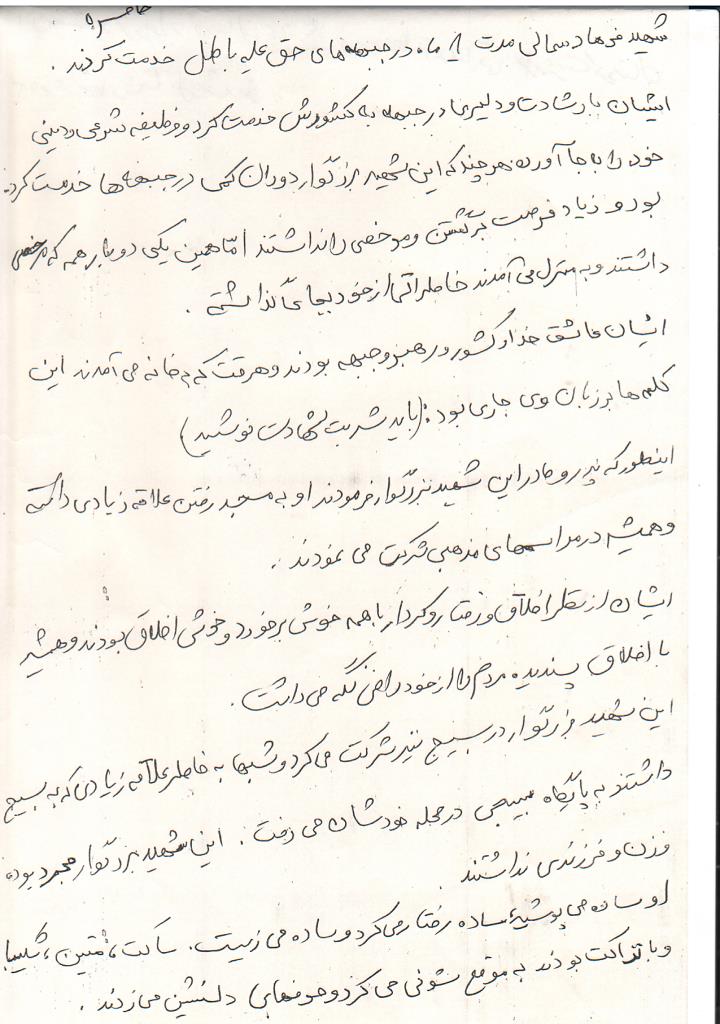 شهید فرهاد سمالی مدت ۸ ماه در جبهه‌های حق علیه باطل خدمت کردند .
ایشان با رشادت و دلیری در جبهه به کشورش خدمت کرد و وظیفه شرعی و دینی
خود را به جا آورده هر چند که این شهید بزرگوار دوران کمی در جبهه‌ها خدمت کرد.
بود و زیاد فرصت برگشتن و مرخصی را نداشتند امّا همین یکی دو بار هم که مرخصی
داشتند و به منزل می آمدند خاطراتی از خود بجای گذاشته .
ایشان عاشق خدا و کشور و رهبر و جبهه بودند و هر وقت که به خانه می آمدند این
کلمه‌ها بر زبان وی جاری بود : (باید شربت شهادت نوشید)
اینطور که پدر و مادر این شهید بزرگوار فرمودند او به مسجد رفتن علاقه زیادی داشته
و همیشه در مراسمهای مذهبی شرکت می نمودند .
ایشان از نظر اخلاق و رفتار و کردار با همه خوش برخورد و خوش اخلاق بودند و همیشه
با اخلاق پسندیده مردم را از خود راضی نگه می داشت .
این شهید بزرگوار در بسیج نیز شرکت می کرد و شبها به خاطر علاقه زیادی که به بسیج
داشتند به پایگاه بسیجی در محله خودشان می رفت . این شهید بزرگوار مجرد بوده
و زن و فرزندی نداشتند .
او ساده می پوشید، ساده رفتار می کرد و ساده می زیست . ساکت ، متین ، شکیبا
و با نزاکت بودند به موقع شوخی می کرد و حرفهای دلنشین می زدند .